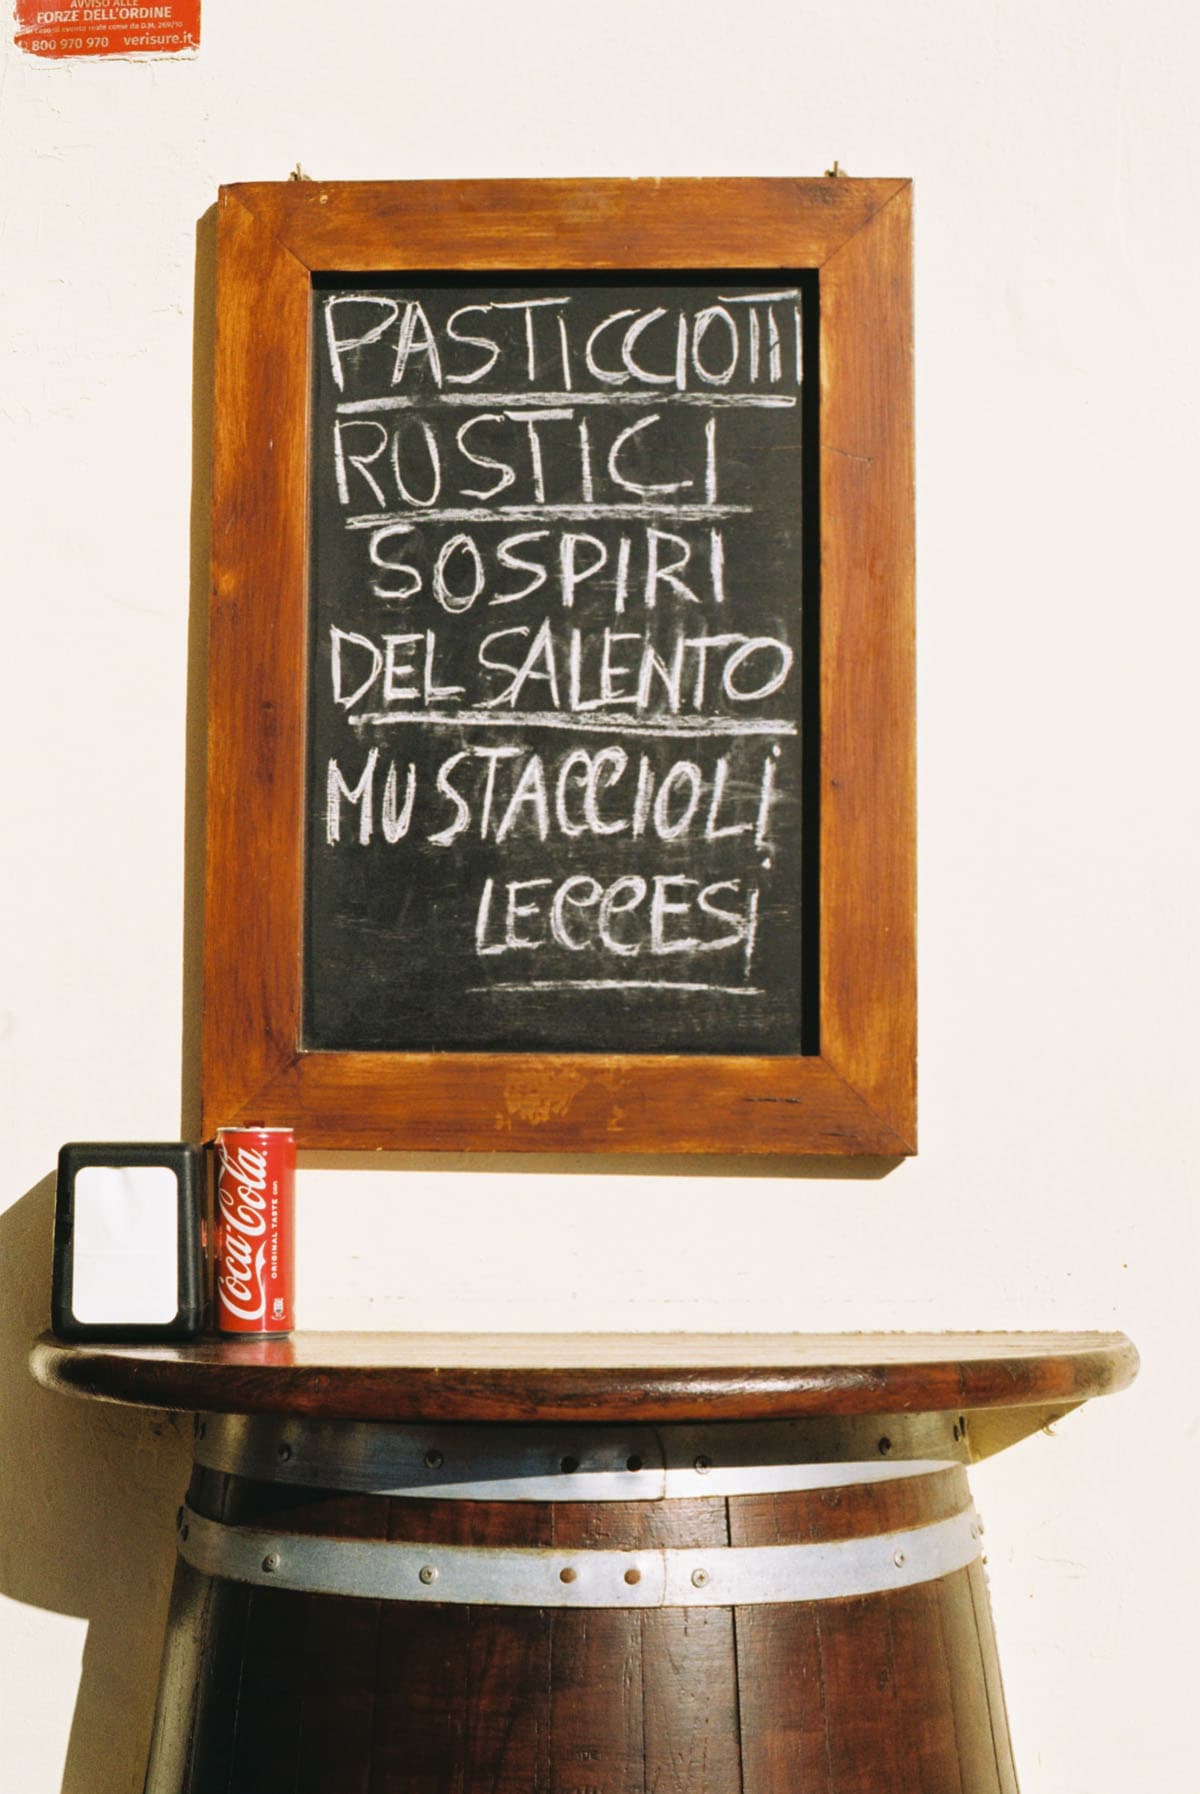 AVVISO ALLE
FORZE DELL'ORDINE
in caso di evento reale come da D.M. 269/10
800 970 970 verisure.it
PASTICCIOTTI
RUSTICI
SOSPIRI
DEL SALENTO
MUSTACCIOLI
LECCESI
Coca-Cola
ORIGINAL TASTE